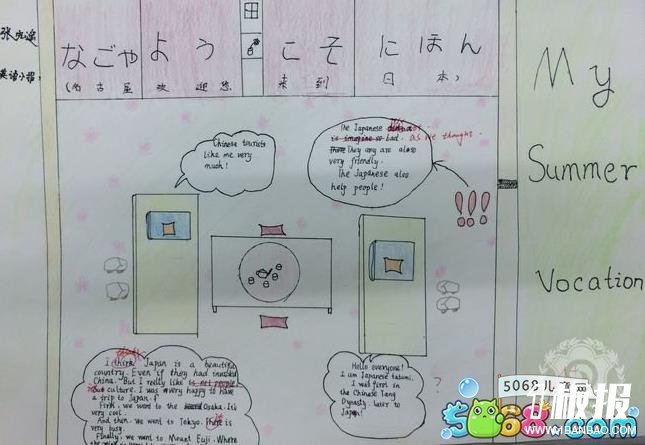 张
英语小报
なごや よう こそ にほん
(名古屋 欢迎您 来到 日本)
My
Summer
Vocation
Chinese tourists
like me very
much!
The Japanese
is imagine so bad. as we thought.
They any are also
very friendly.
The Japanese also
help people!
!!!
I think Japan is a beautiful
country. Even if they had invaded
China. But I really like is not people
culture. I was very happy to have
a trip to Japan.
First, we went to the Osaka. It's
very cool.
And then, we went to Tokyo. There is
very busy.
Finally, we went to Mount Fuji. Where
Hello everyone!
I am Japanese tatami.
I was first in
the Chinese Tang
Dynasty. later to
Japan!
?
5068儿童网
5068.com
板报
WWW.BANBAO.COM